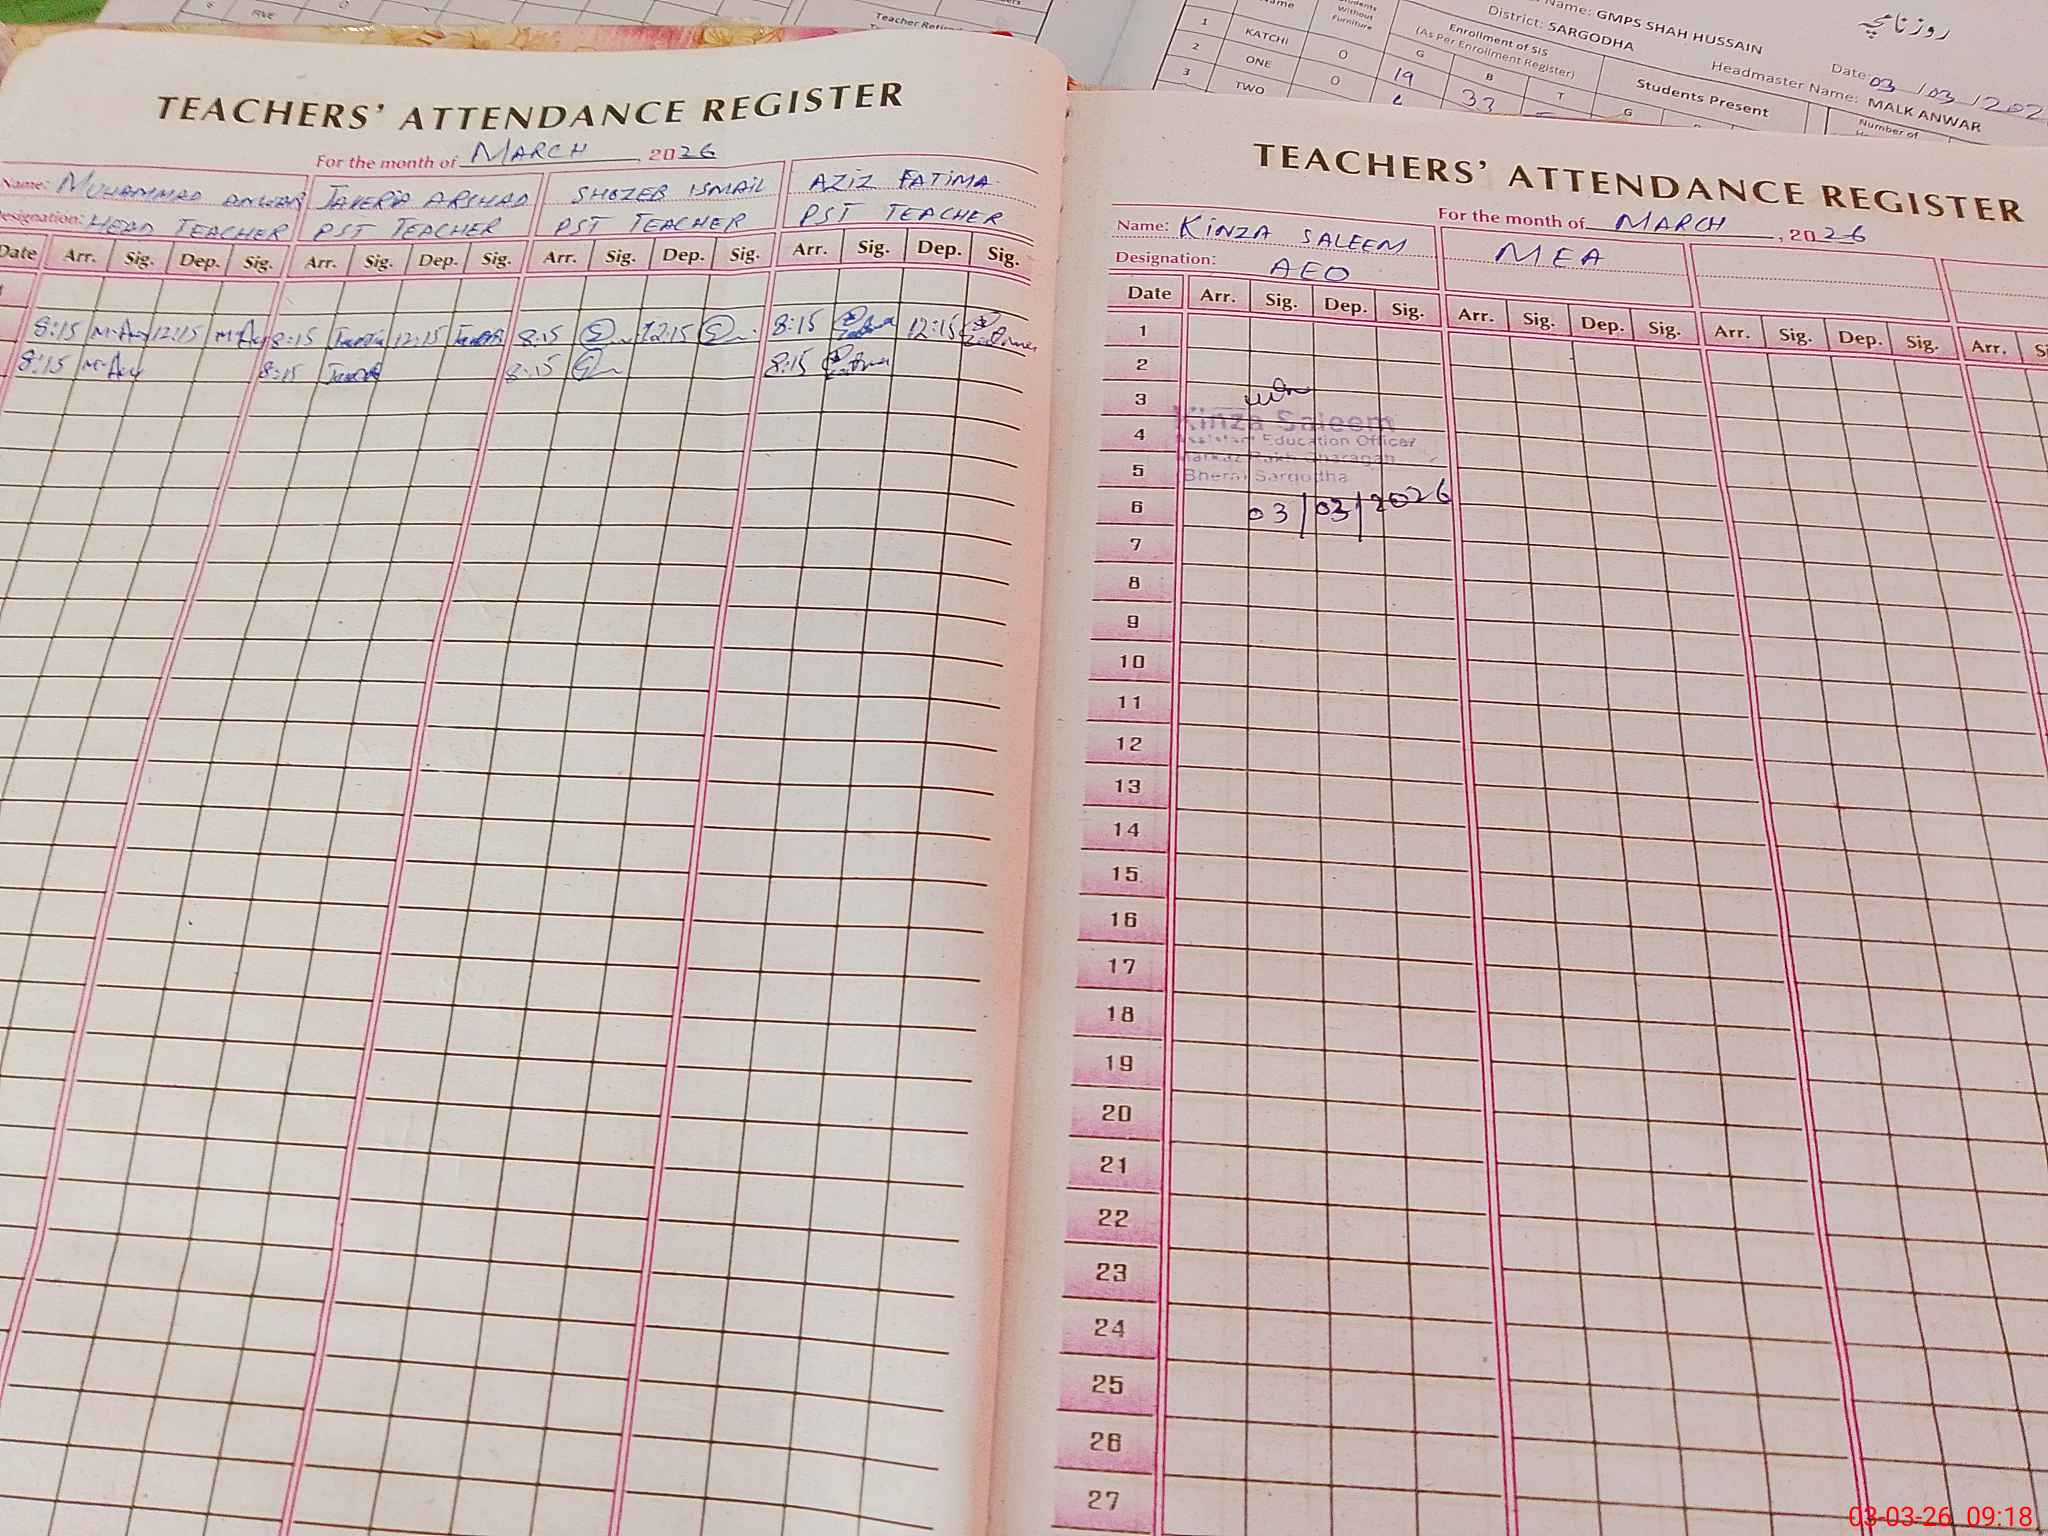 5 FIVE 0
Teacher Reti
Name
Students Without Furniture
Name: GMPS SHAH HUSSAIN
روزنامچہ
District: SARGODHA
Date: 03/03/202
Headmaster Name: MALK ANWAR
Enrollment of SIS
(As Per Enrollment Register)
Students Present
Number of
G B T G
1 KATCHI 0 19 33
2 ONE 0
3 TWO
TEACHERS' ATTENDANCE REGISTER
For the month of MARCH, 2026
Name: MUHAMMAD ANWAR JAVERIA ARSHAD SHAZEB ISMAIL AZIZ FATIMA
Designation: HEAD TEACHER PST TEACHER PST TEACHER PST TEACHER
Date Arr. Sig. Dep. Sig. Arr. Sig. Dep. Sig. Arr. Sig. Dep. Sig. Arr. Sig. Dep. Sig.
1
8:15 12:15 8:15 12:15 8:15 12:15 8:15 12:15
8:15 8:15 8:15 8:15
TEACHERS' ATTENDANCE REGISTER
For the month of MARCH, 2026
Name: KINZA SALEEM MEA
Designation: AEO
Date Arr. Sig. Dep. Sig. Arr. Sig. Dep. Sig. Arr. Sig. Dep. Sig. Arr.
1
2
3
Kinza Saleem
4 Assistant Education Officer
Markaz Rakh Charagah
5 (Bhera) Sargodha
6 03/03/2026
7
8
9
10
11
12
13
14
15
16
17
18
19
20
21
22
23
24
25
26
27
03-03-26 09:18